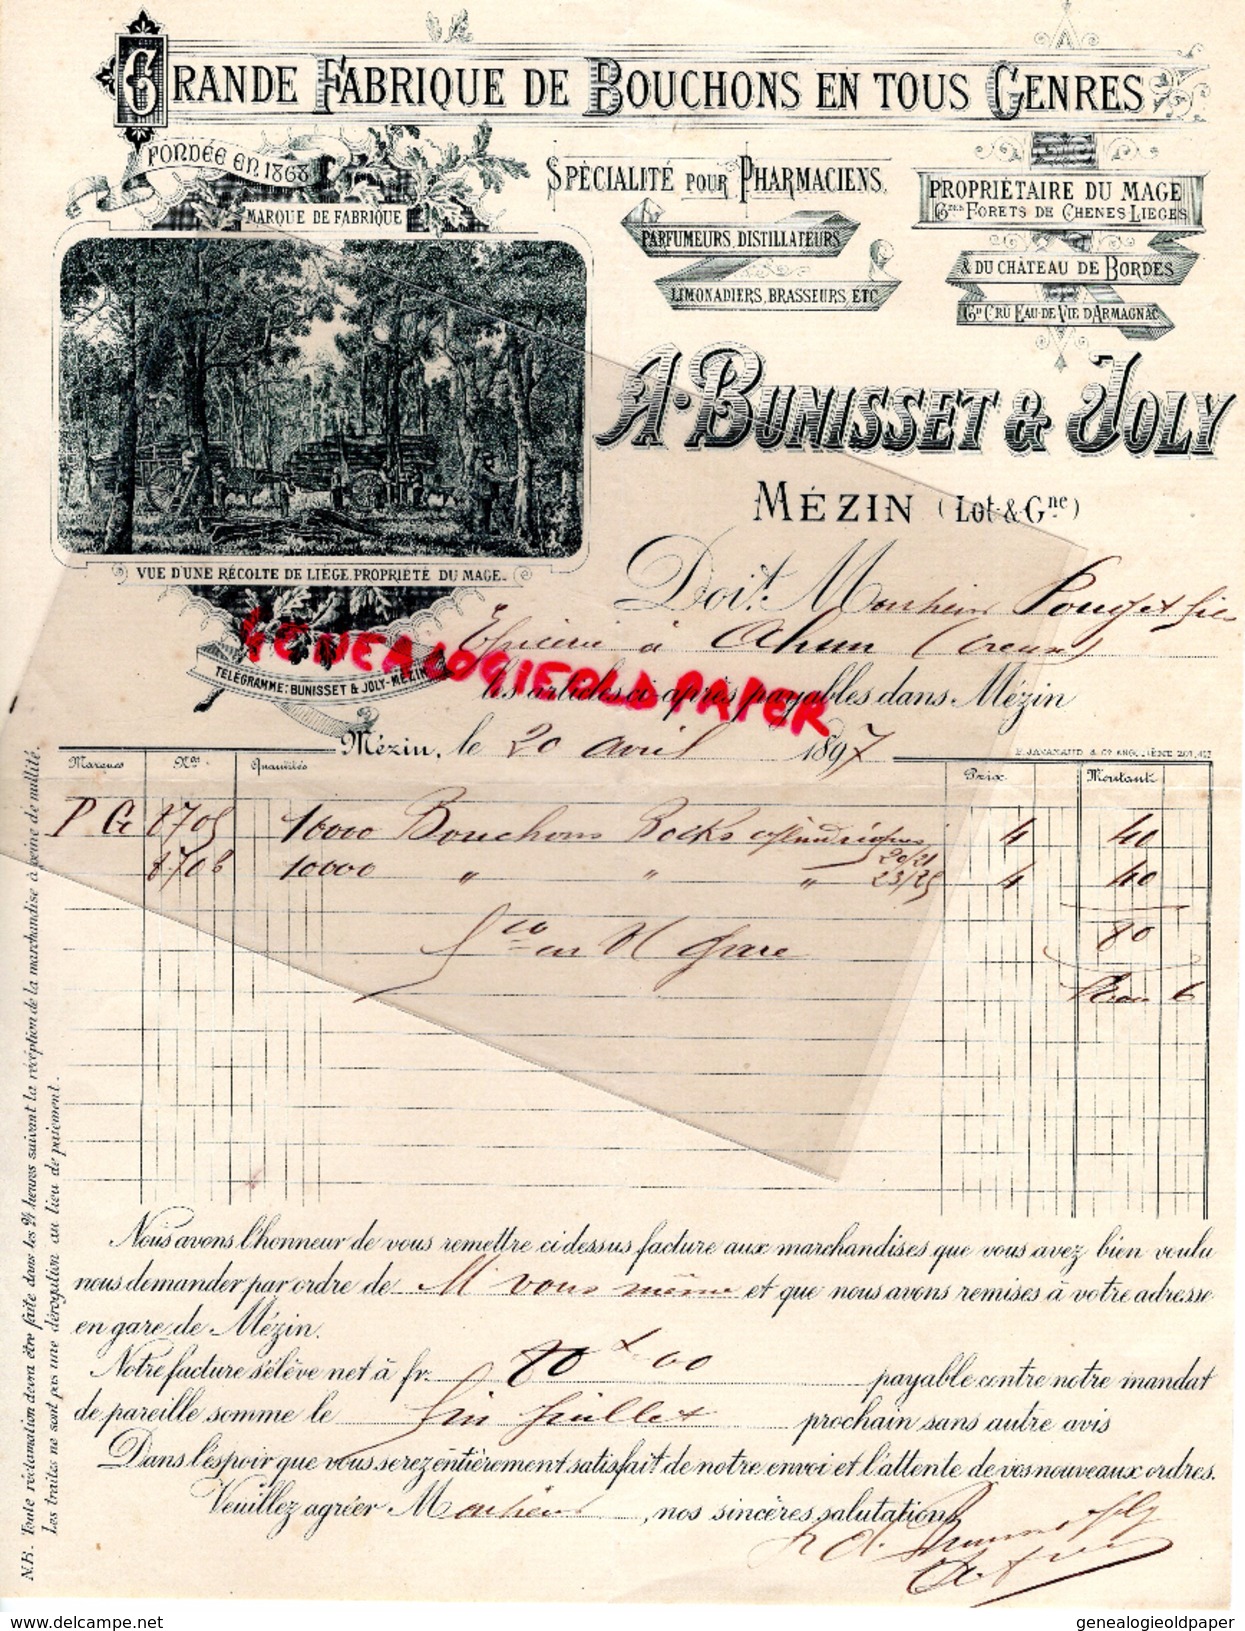 GRANDE FABRIQUE DE BOUCHONS EN TOUS GENRES
FONDÉE EN 1868
MARQUE DE FABRIQUE
SPÉCIALITÉ POUR PHARMACIENS,
PARFUMEURS, DISTILLATEURS
LIMONADIERS, BRASSEURS, ETC
PROPRIÉTAIRE DU MAGE
Gdes FORETS DE CHENES LIEGES
& DU CHÂTEAU DE BORDES
Gd CRU EAU-DE-VIE D'ARMAGNAC
A. BUNISSET & JOLY
MÉZIN (Lot & Gne)
VUE D'UNE RÉCOLTE DE LIÈGE. PROPRIÉTÉ DU MAGE.
TÉLÉGRAMME: BUNISSET & JOLY-MÉZIN
GENEALOGIEOLDPAPER
Doit Monsieur
Epicerie à Ahun (Creuse)
les articles ci-après payables dans Mézin
Mézin, le 20 avril 1897
Marques Nos Quantités Prix Montant
P G 8705 10000 Bouchons Bocks cylindriques 20/21 4 40
8706 10000 " " " 23/25 4 40
80
Fco en M gare
N.B. Toute réclamation devra être faite dans les 24 heures suivant la réception de la marchandise à peine de nullité.
Les traites ne sont pas une dérogation au lieu de paiement.
Nous avons l'honneur de vous remettre ci dessus facture aux marchandises que vous avez bien voulu
nous demander par ordre de M vous même et que nous avons remises à votre adresse
en gare de Mézin.
Notre facture s'élève net à fr. 80 00 payable contre notre mandat
de pareille somme le fin juillet prochain sans autre avis
Dans l'espoir que vous serez entièrement satisfait de notre envoi et l'attente de vos nouveaux ordres.
Veuillez agréer Monsieur, nos sincères salutations
genealogieoldpaper
www.delcampe.net